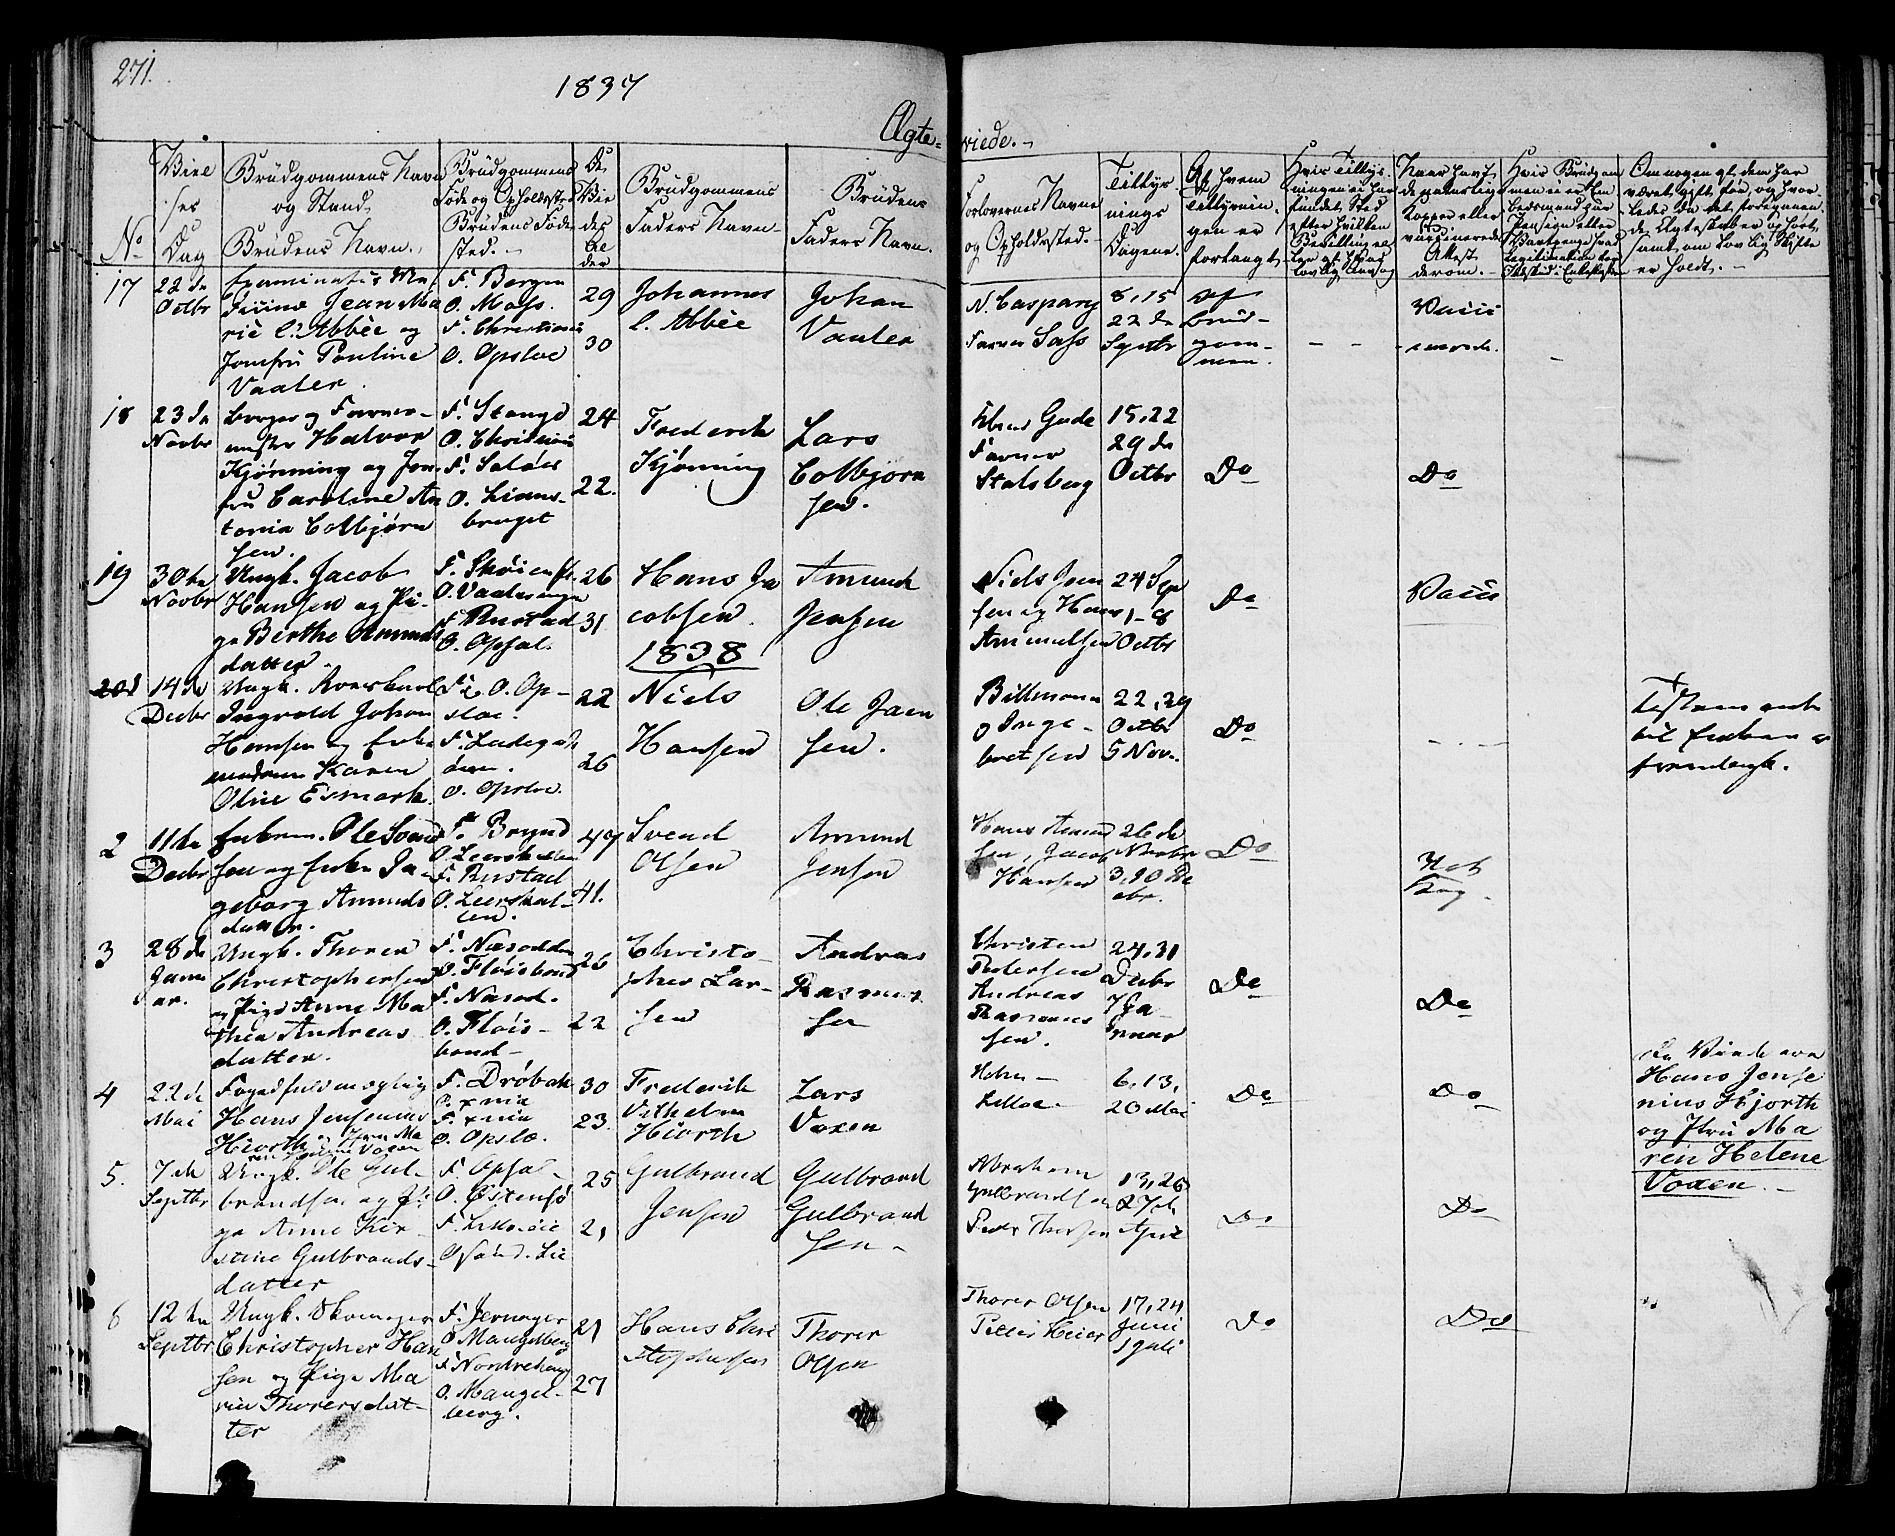 271.
1837
Ægte-
viede.-
No
Viel
ses
Dag
Brudgommens Navn
og Stand,
Brudens Navn.
Brudgommens
Føde og Opholdssted
Brudens Føde
sted.-
De
Vie
des
Al
der
Brudgommens
Faders Navn-
Brudens
Faders Navn.
Forlovernes Navne
og Opholdssted.-
Tillys
nings
Dagene.
Af hvem
Tillysnin
gen er
forlangt
Hvis Tillys-
ningen ei har
fundet Sted
efter hvilken
Naar havt
de naturlige
Kopper eller
vaccinerede
Attest
derom.-
Om nogen af dem har
været gift før, og hvor-
ledes da det foregaaen-
de Ægteskab er ophørt,
samt om lovlig Skifte
er holdt.-
17
22de
Octbr
Examinatus
Jean Ma
rie l'Abbée og
Jomfru Pauline
Vaaler.
F. Bergen
O. Moss.
F. Christiania
O. Opsloe
29
30
Johannes
l'Abbée
Johan
Vaaler
N. Caspary
Farver Sass
8, 15
22de
Septbr
Af
Brud-
gom-
men.
Vacci
nerede.
18
23de
Novbr
Borger og Farver-
mester Halvor
Kjønning og Jom
fru Caroline An
tonia Colbjørn
sen.
F. Stange
O. Christiania
F. Soløer
O. Lians-
bruget
24
22.
Frederik
Kjønning
Lars
Colbjørn
sen.
Gude
Farver
Stalsberg
15, 22
29de
Octbr
Do
Do
19
30te
Novbr
Ungk. Jacob
Hansen og Pi-
ge Berthe Amunds
datter.
F. Skøien
O. Vaalerengen
F. Rustad
O. Opsal.
26
31
Hans Ja
cobsen.
Amund
Jensen
Niels Jen
sen og Hans
Amundsen
24 Sep
1-8
Octbr
Do
Vacci
1838
20 1
14de
Decbr
Ungk.
Ingvold Johan
Hansen og Enke
madame Karen
Oline Esmark.
F. & O. Op-
sloe.
F. Ladegaards
øen.
O. Opsloe.
22
26
Niels
Hansen
Ole Jaen
sen.
Billmann
og Inge-
bretsen
22, 29
Octbr
5 Nov.
Do
Testamente
til Enken er
fremlagt.
2
11te
Decbr
Enkem. Ole Svend
sen og Enke In
geborg Amunds
datter.
F. Brynd
O. Leerskallen
F. Rustad
O. Leerskal-
len.
47
41.
Svend
Olsen
Amund
Jensen
Hans Amund
sen, Jacob
Hansen
26de
Novbr
3, 10 De
cbr.
Do
3
28de
Janu
ar.
Ungk. Thorer
Christophersen
og Pige Anne Ma
thea Andreas
datter.
F. Næsodden
O. Fløisbond
F. Næsod.
O. Fløis-
bond-
26
22
Christo-
pher Lar-
sen
Andreas
Rasmus
sen
Christen
Pedersen
Andreas
Rasmus
sen.
24, 31
Decbr
7 Ja-
nuar
Do
Do
4
22de
Mai
Fogedfuldmægtig
Hans Jensenius
Hiorth og Jfru Ma
ren Helene Voxen
F. Drøbak
O. Xnia
F. Xnia
O. Opslo.
30
23.
Frederik
Vilhelm
Hiorth
Lars
Voxen
6, 13,
20 Mai
Do
Do
De Viede ere
Hans Jense
nius Hjorth
og Jfru Ma
ren Helene
Voxen.-
5.
7de
Septbr
Ungk. Ole Gul-
brandsen og Pi
ge Anne Kir-
stine Gulbrands-
datter
F. Opsal-
O. Østensø
25
21
Gulbrand
Jensen
Gulbrand
Gulbrand
sen-
Abraham
Gulbrandsen
Peder Thorsen
13, 26
27de
April
Do
Do
6
12te
Septbr
Ungk. Skomager
Christopher Han
sen og Pige Ma
rie Thorersdat-
ter
F. Jevnager
O. Mangelberg
F. Nordrehoug
O. Mangel-
berg.
21
27
Hans Chri
stophersen
Thorer
Olsen
Thorer Olsen
Peder Heier
17, 24
Juni
1 Juli
Do
Do